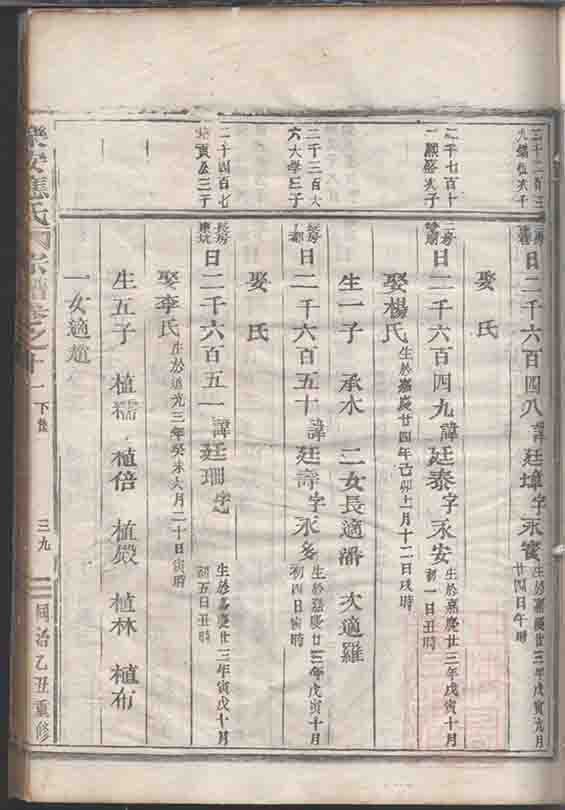 二千二百三
二房
日二千六百四八 諱廷璋字永實 生於嘉慶廿三年戊寅九月
廿四日午時
娶 氏
二千七百十
二房
日二千六百四九 諱廷泰字永安 生於嘉慶廿三年戊寅十月
初一日丑時
娶楊氏 生於嘉慶廿四年己卯十二月十二日戌時
生一子 承木 二女長適潘 次適羅
二千三百六
六大學三子
長房
日二千六百五十 諱廷壽字永多 生於嘉慶廿三年戊寅十月
初四日
娶 氏
二千四百七
三子
長房
東坑
日二千六百五一 諱廷珊字 生於嘉慶廿三年寅戊十月
初五日丑時
娶李氏 生於道光三年癸未六月二十日寅時
生五子 植糯 植倍 植毅 植林 植布
一女適趙
樂安 氏 宗譜卷之十一下
三九
同治乙丑重修